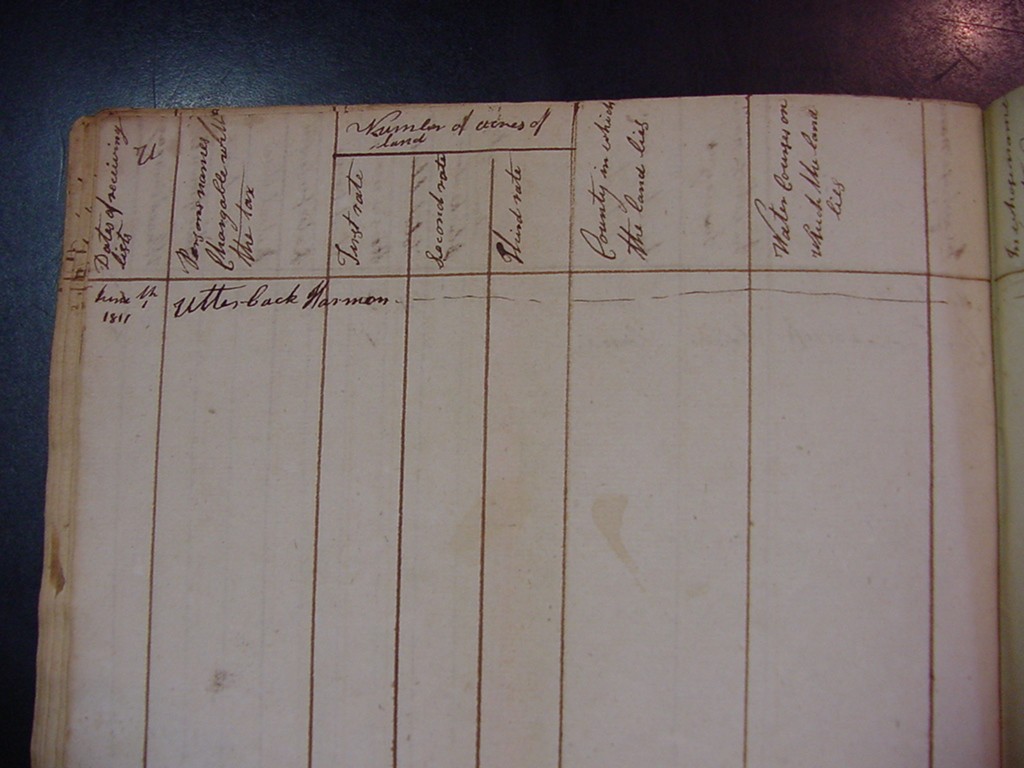 Dates of receiving
lists
U
Persons names
Chargable with
the tax
Number of acres of
land
First rate
Second rate
Third rate
County in which
the land lies
Water Courses on
which the land
lies
June th
1811
Utterback Harmon